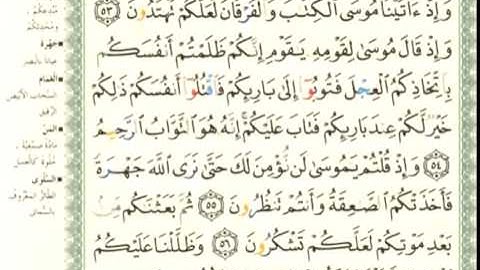 وَإِذْ ءَاتَيْنَا مُوسَى الْكِتَٰبَ وَالْفُرْقَانَ لَعَلَّكُمْ تَهْتَدُونَ ٥٣
وَإِذْ قَالَ مُوسَىٰ لِقَوْمِهِ يَٰقَوْمِ إِنَّكُمْ ظَلَمْتُمْ أَنفُسَكُم
بِاتِّخَاذِكُمُ الْعِجْلَ فَتُوبُوٓا۟ إِلَىٰ بَارِئِكُمْ فَاقْتُلُوٓا۟ أَنفُسَكُمْ ذَٰلِكُمْ
خَيْرٌ لَّكُمْ عِندَ بَارِئِكُمْ فَتَابَ عَلَيْكُمْ إِنَّهُ هُوَ التَّوَّابُ الرَّحِيمُ
٥٤ وَإِذْ قُلْتُمْ يَٰمُوسَىٰ لَن نُّؤْمِنَ لَكَ حَتَّىٰ نَرَى اللَّهَ جَهْرَةً
فَأَخَذَتْكُمُ الصَّٰعِقَةُ وَأَنتُمْ تَنظُرُونَ ٥٥ ثُمَّ بَعَثْنَٰكُم مِّنۢ
بَعْدِ مَوْتِكُمْ لَعَلَّكُمْ تَشْكُرُونَ ٥٦ وَظَلَّلْنَا عَلَيْكُمُ
جَهْرَة
عيانا بالبصر
الغمام
السحاب الأبيض
الرقيق
المن
مادة صمغية
حلوة كالعسل
السلوى
الطائر المعروف
بالسمانى